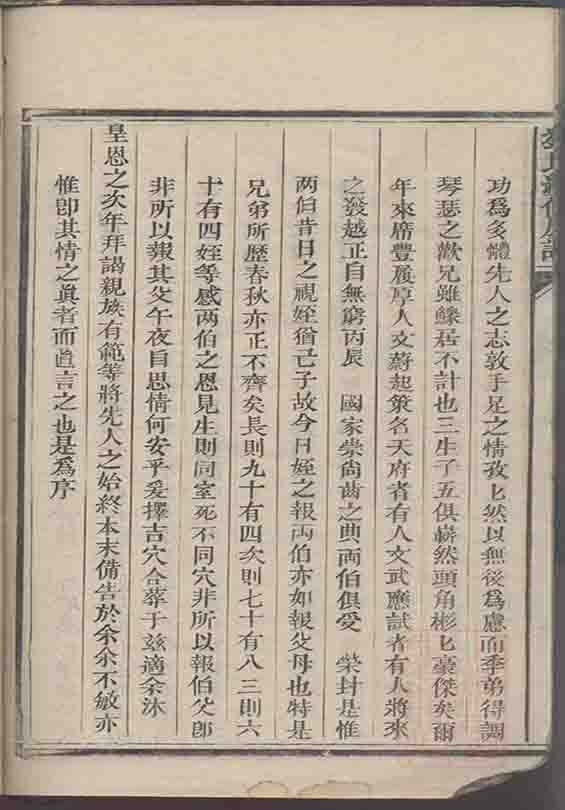 功爲多體先人之志敦手足之情孜匕然以無後爲慮而季弟得調
琴瑟之歡兄雖鰥居不計也三生子五俱嶄然頭角彬匕豪傑矣爾
年來席豐履厚人文蔚起策名天府者有人文武應試者有人將來
之發越正自無窮丙辰　國家崇尙齒之典两伯俱愛　榮封是惟
两伯昔日之視姪猶己子故今日姪之報两伯亦如報父母也特是
兄弟所歷春秋亦正不齊矣長則九十有四次則七十有八三則六
十有四姪等感两伯之恩見生則同室死不同穴非所以報伯父卽
非所以報其父午夜自思情何安乎爰擇吉穴合葬于兹適余沐
皇恩之次年拜謁親族有範等將先人之始終本末備告於余余不敏亦
惟卽其情之眞者而直言之也是爲序